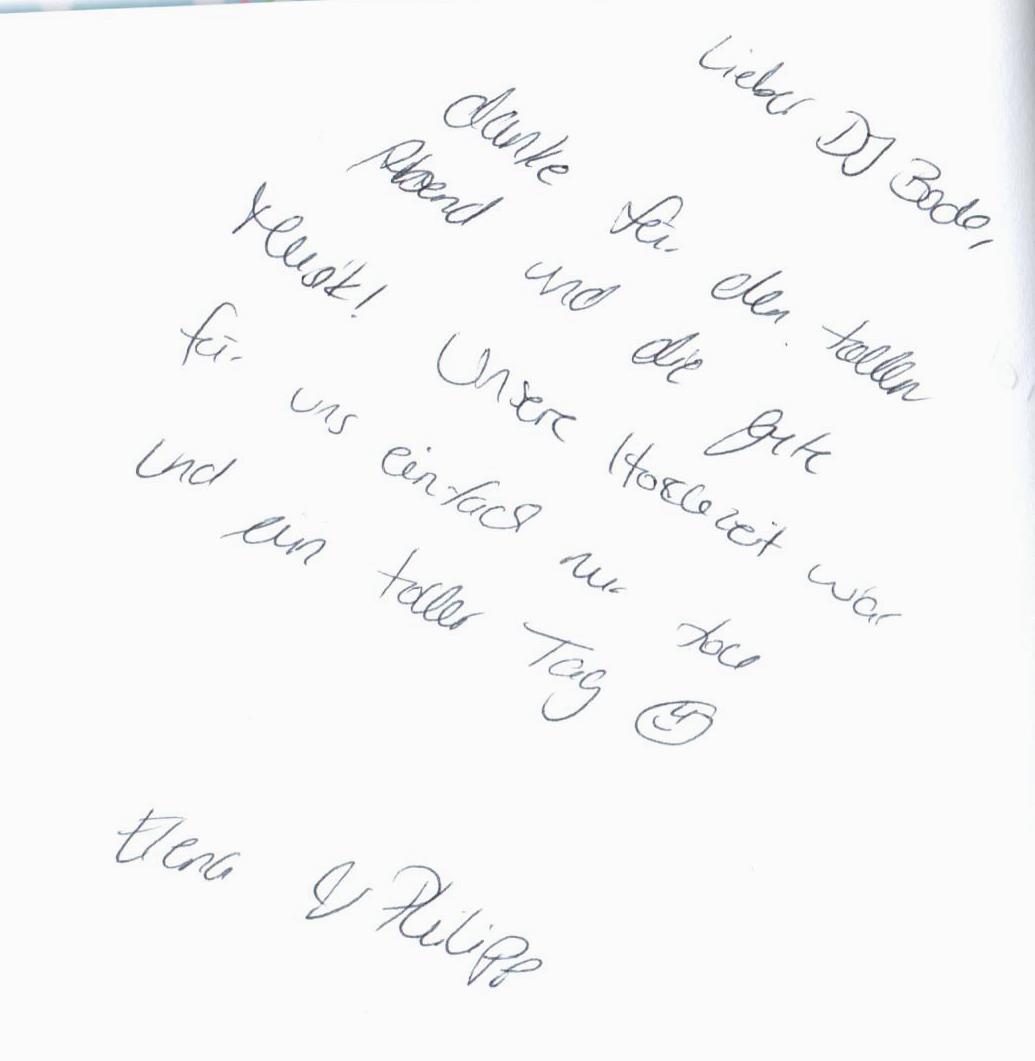 Lieber DJ Bodo,
danke für den tollen
Abend und die gute
Musik! Unsere Hochzeit war
für uns einfach nur toll
und ein toller Tag ☺
Elena & Philipp